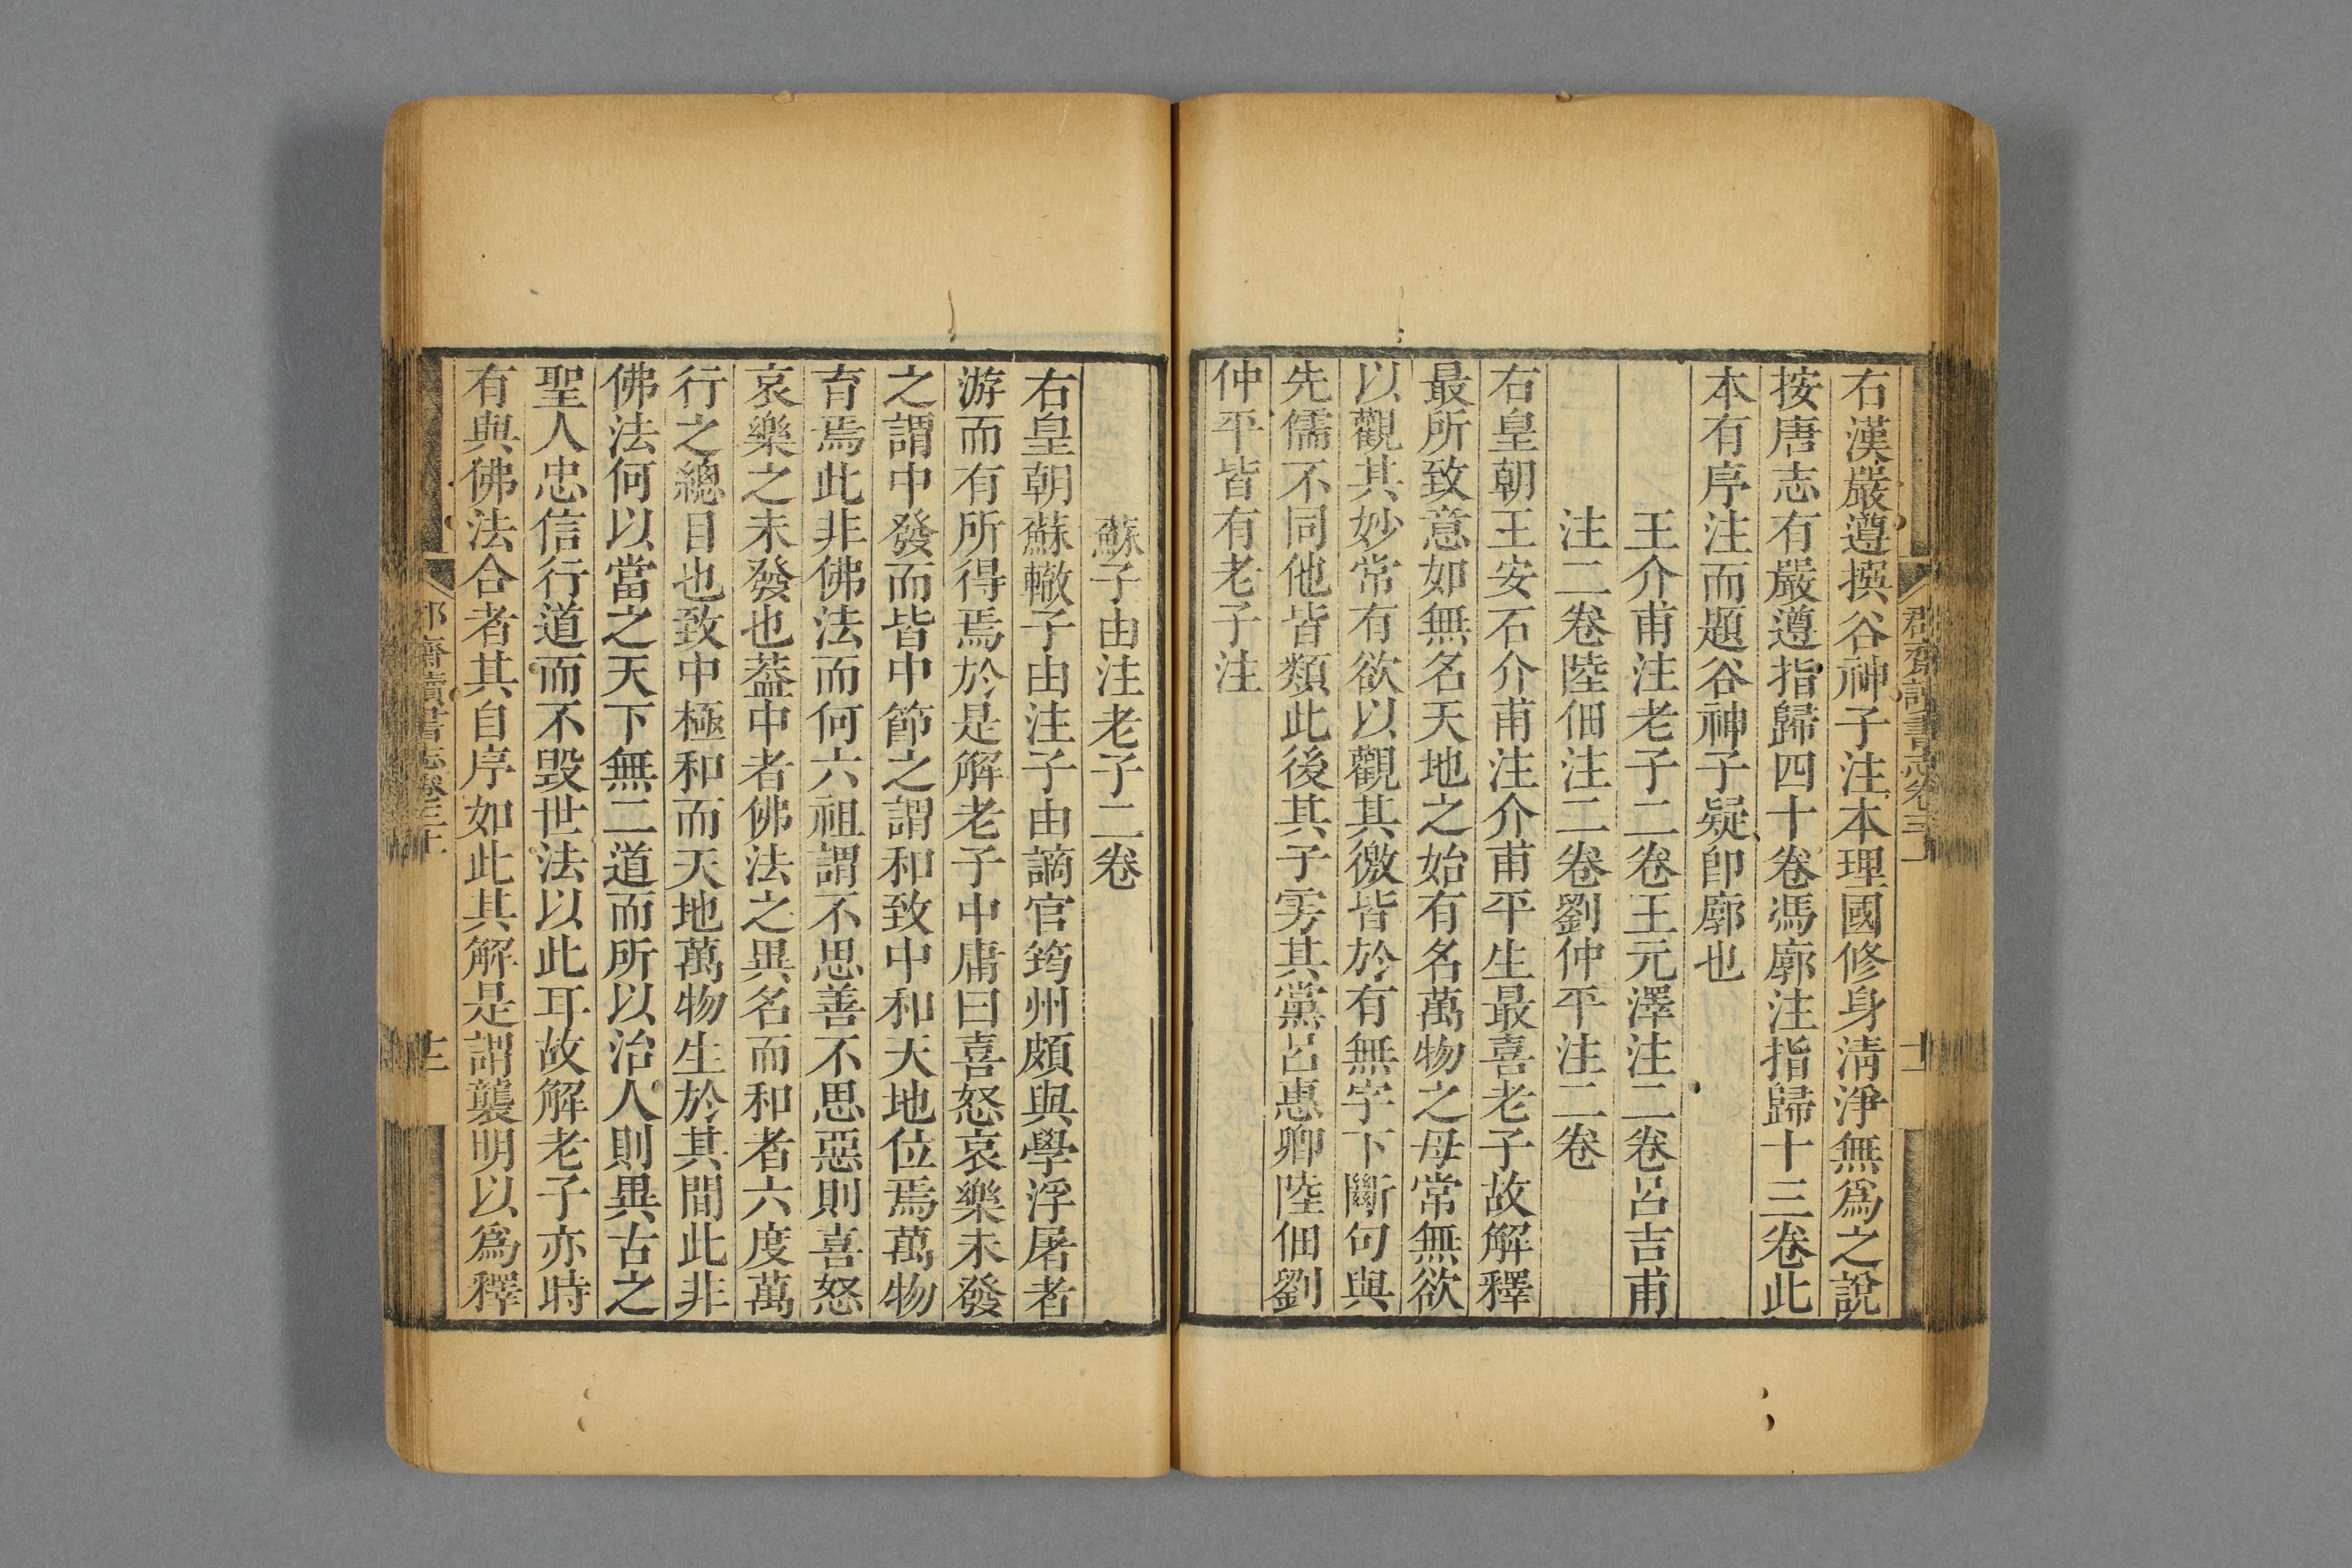 右漢嚴遵撰谷神子注本理國修身淸淨無爲之說
按唐志有嚴遵指歸四十卷馮廓注指歸十三卷此
本有序注而題谷神子疑卽廓也
王介甫注老子二卷王元澤注二卷呂吉甫
注二卷陸佃注二卷劉仲平注二卷
右皇朝王安石介甫注介甫平生最喜老子故解釋
最所致意如無名天地之始有名萬物之母常無欲
以觀其妙常有欲以觀其徼皆於有無字下斷句與
先儒不同他皆類此後其子雱其黨呂惠卿陸佃劉
仲平皆有老子注
蘇子由注老子二卷
右皇朝蘇轍子由注子由謫官筠州頗與學浮屠者
游而有所得焉於是解老子中庸曰喜怒哀樂未發
之謂中發而皆中節之謂和致中和天地位焉萬物
育焉此非佛法而何六祖謂不思善不思惡則喜怒
哀樂之未發也葢中者佛法之異名而和者六度萬
行之總目也致中極和而天地萬物生於其間此非
佛法何以當之天下無二道而所以治人則異古之
聖人忠信行道而不毀世法以此耳故解老子亦時
有與佛法合者其自序如此其解是謂襲明以爲釋